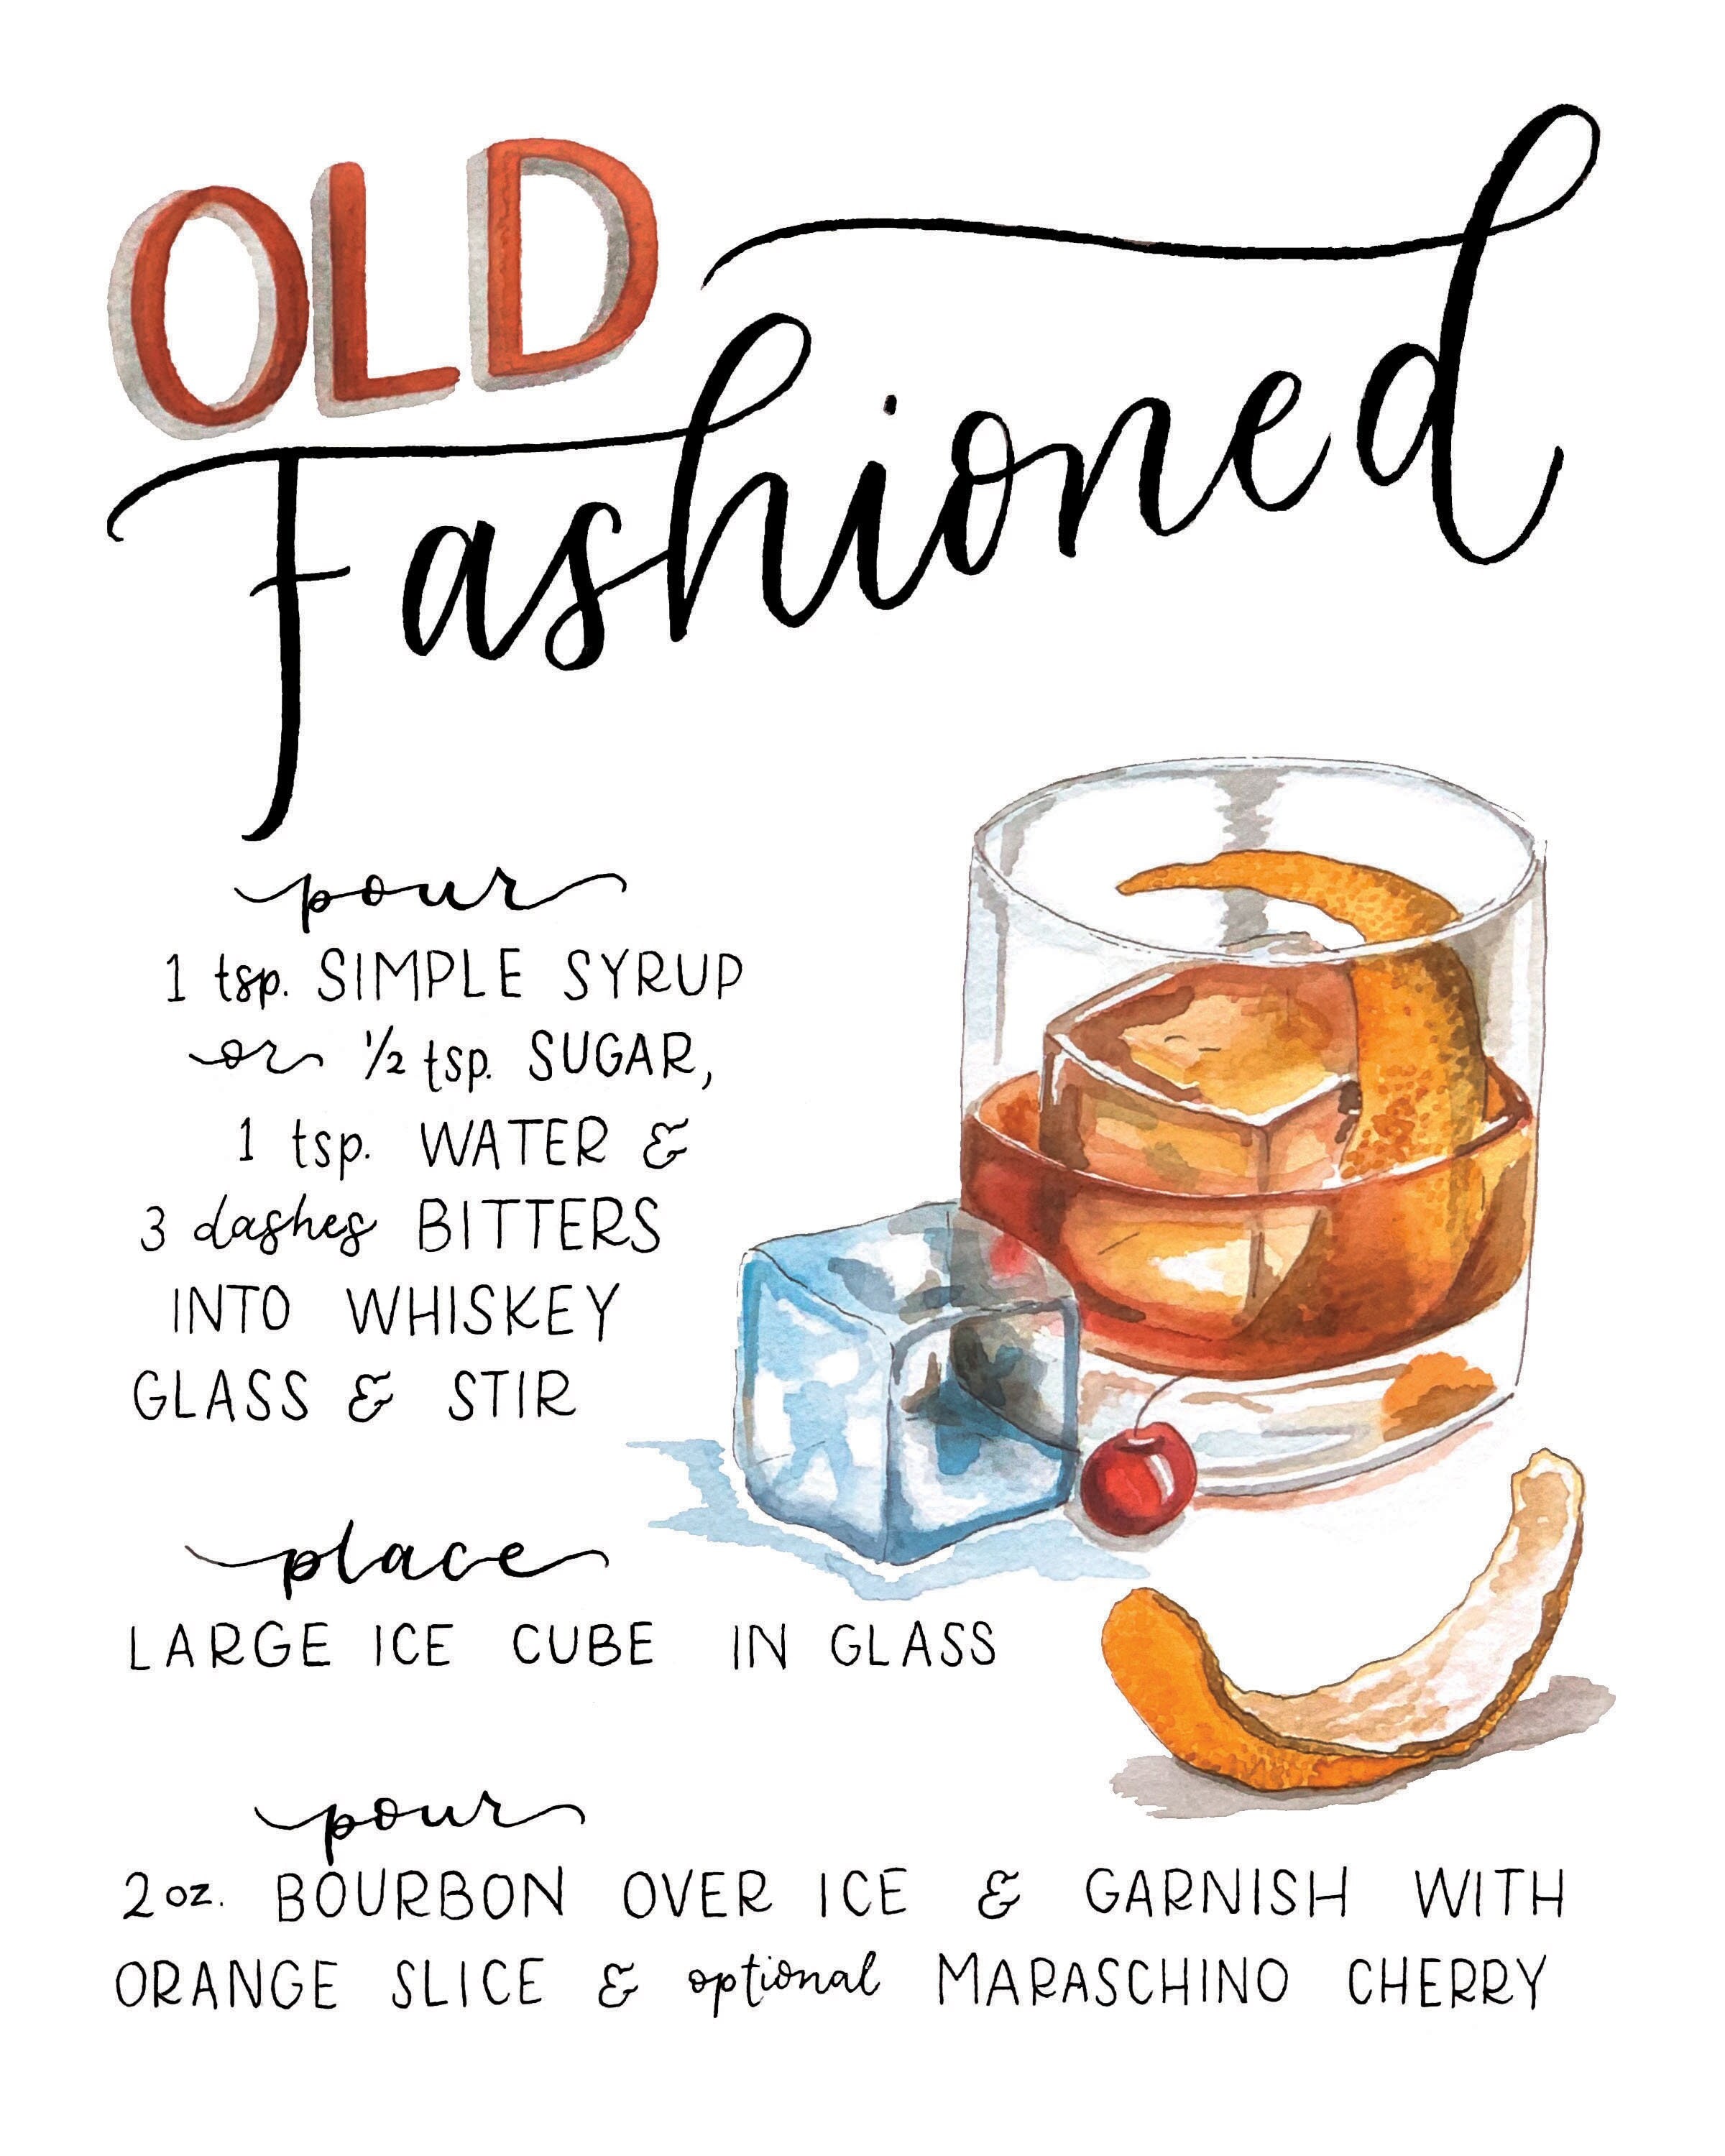 OLD
Fashioned
pour
1 tsp. SIMPLE SYRUP
or 1/2 tsp. SUGAR,
1 tsp. WATER &
3 dashes BITTERS
INTO WHISKEY
GLASS & STIR
place
LARGE ICE CUBE IN GLASS
pour
2 oz. BOURBON OVER ICE & GARNISH WITH
ORANGE SLICE & optional MARASCHINO CHERRY